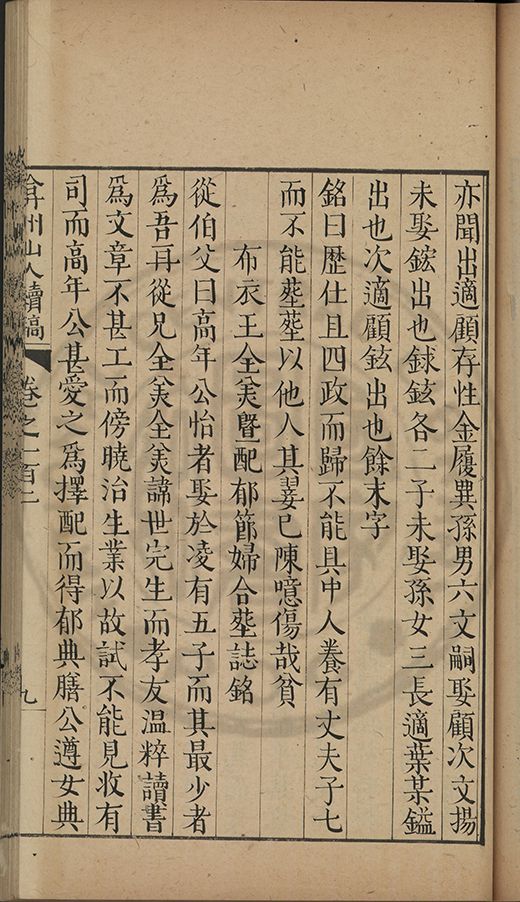 亦聞出適顧存性金履巽孫男六文嗣娶顧次文揚
未娶鋐出也銶鉉各二子未娶孫女三長適葉某鎰
出也次適顧鉉出也餘未字
銘曰歷仕且四政而歸不能具中人養有丈夫子七
而不能塟塟以他人其翣已陳噫傷哉貧
布衣王全美曁配郁節婦合塟誌銘
從伯父曰高年公怡者娶於凌有五子而其最少者
爲吾再從兄全美全美諱世完生而孝友温粹讀書
爲文章不甚工而傍曉治生業以故試不能見收有
司而高年公甚愛之爲擇配而得郁典膳公遵女典
弇州山人續稿 卷之一百二 九